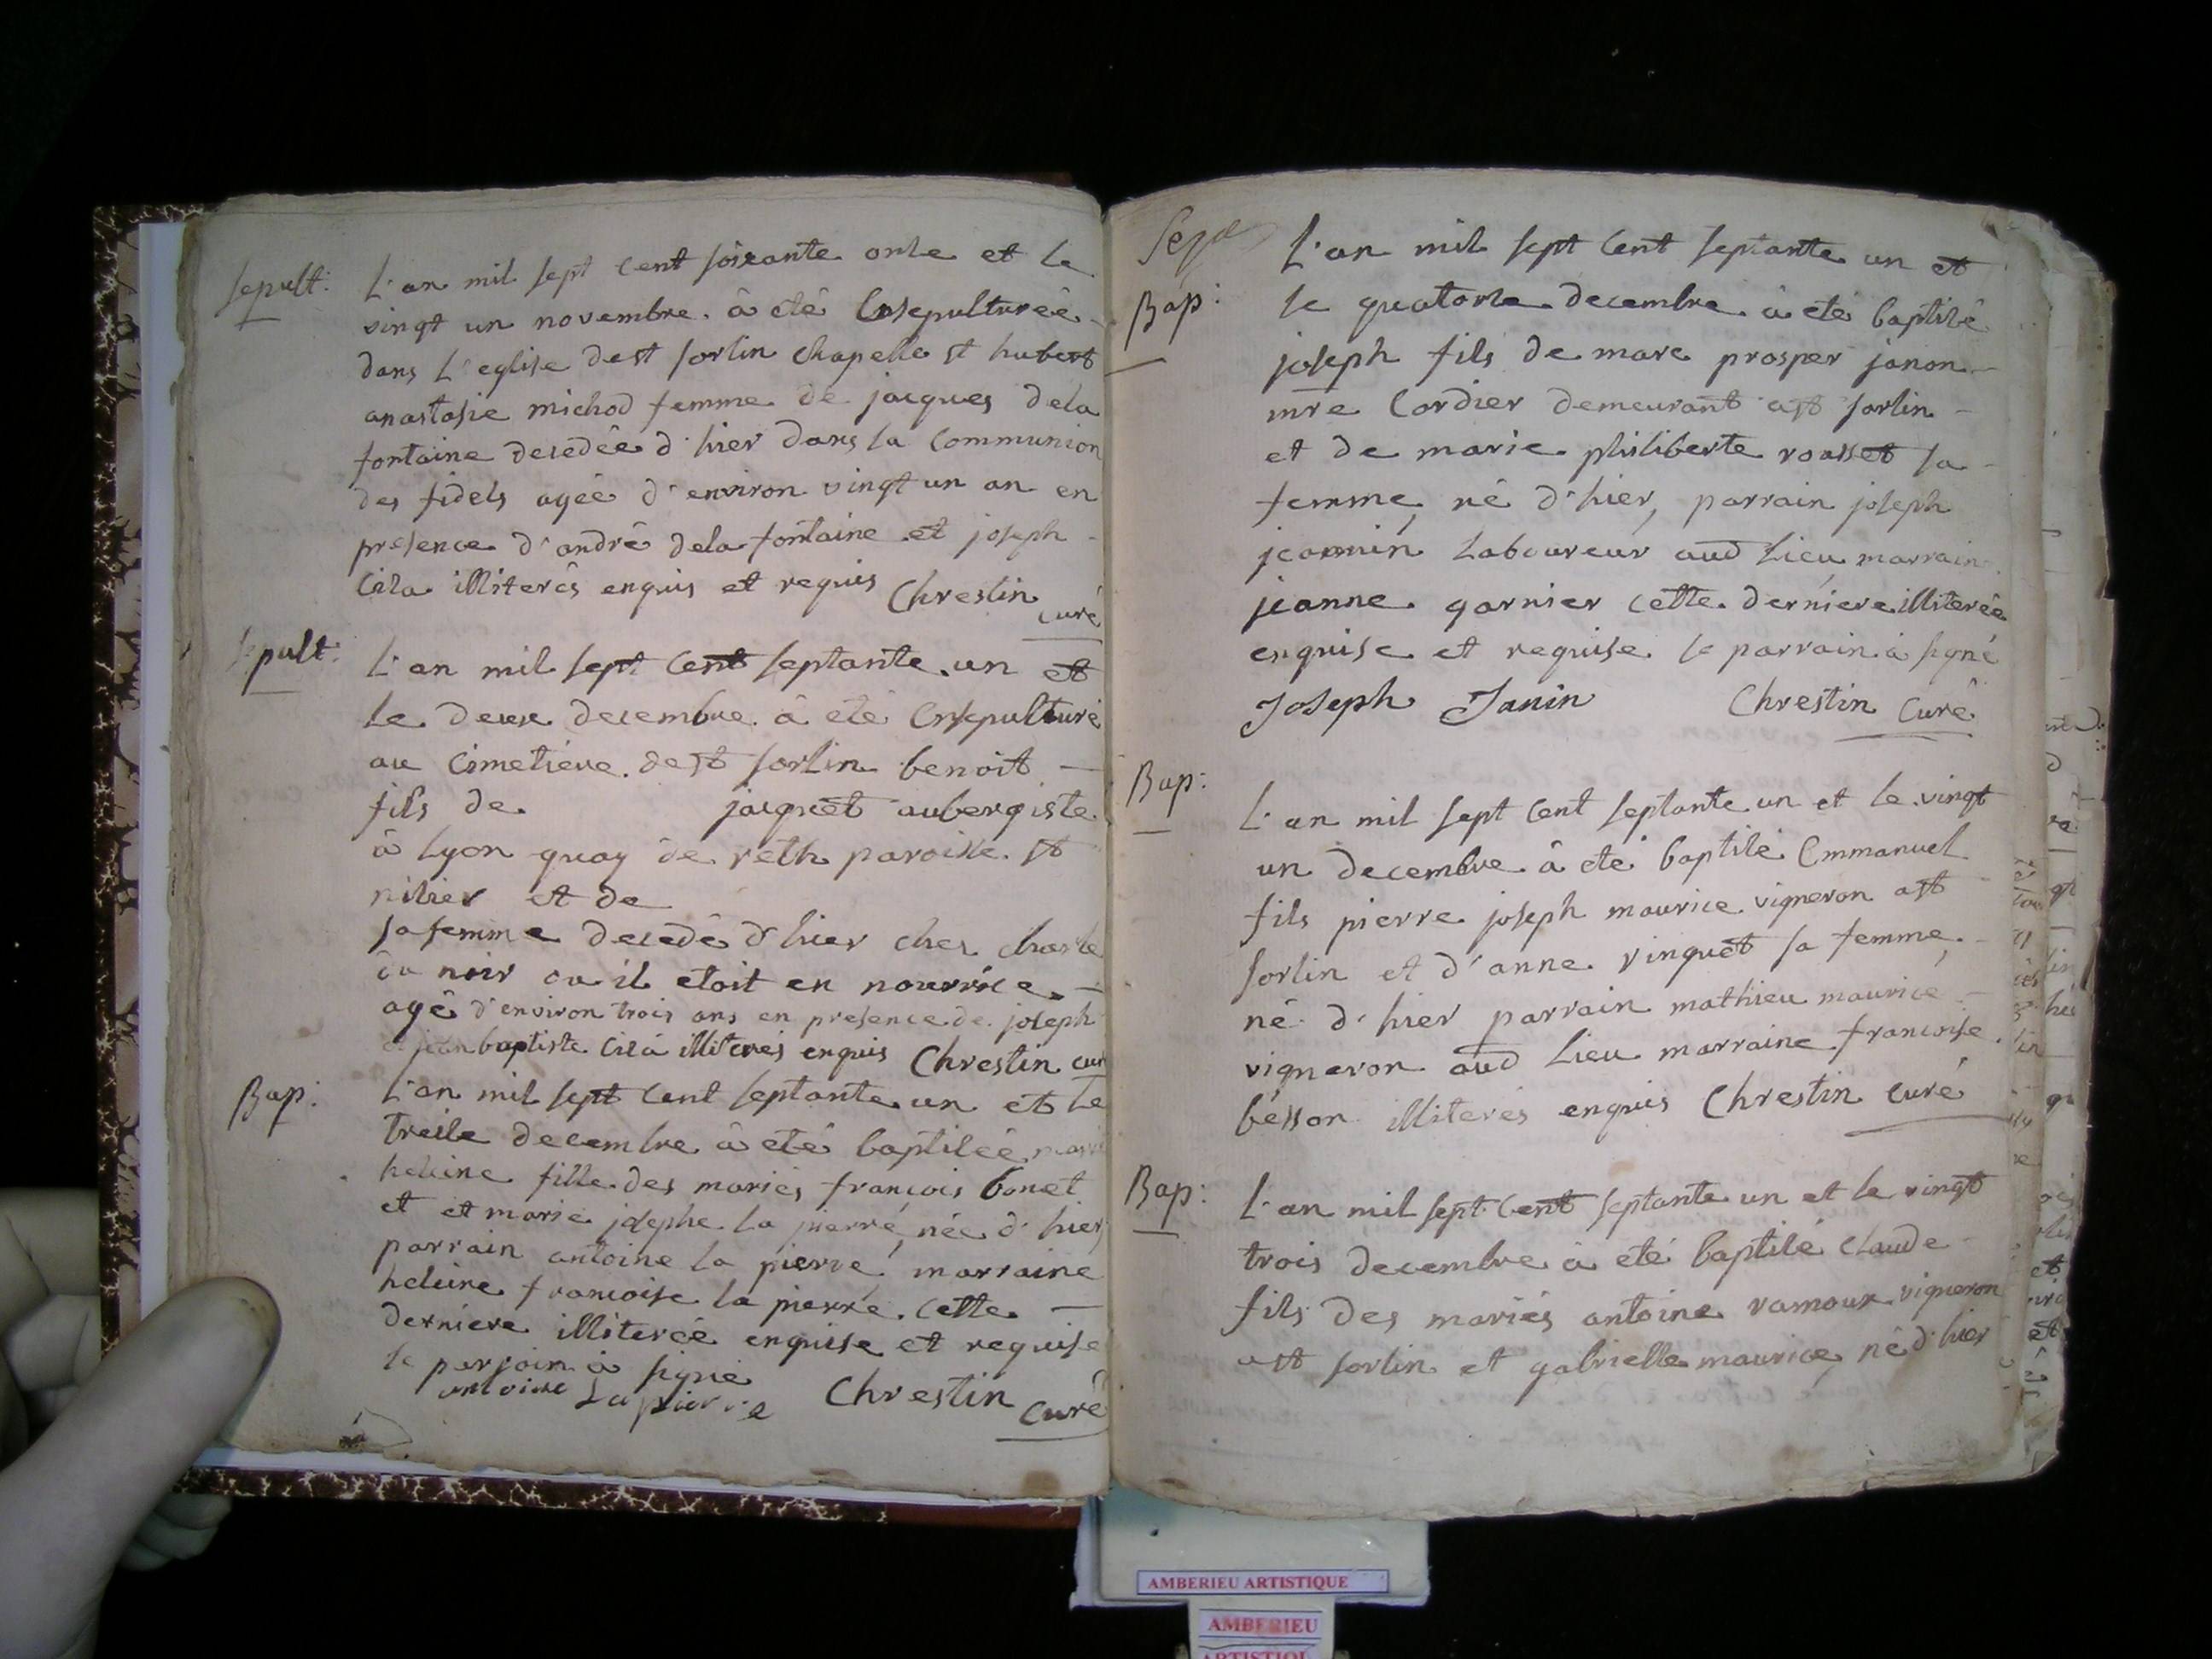 sepult:
L'an mil sept cent soixante onze et le
vingt un novembre à été ensepulturée
dans l'eglise de st sorlin chapelle st hubert
anastasie michod femme de jacques dela
fontaine decedée d'hier dans la communion
des fidels agée d'environ vingt un an en
presence d'andré dela fontaine et joseph
illiterés enquis et requis Chrestin
curé
sepult:
L'an mil sept cent septante un et
le deux decembre à été ensepulturé
au cimetiere de st sorlin benoit
fils de jacquet aubergiste
à Lyon quay de reth paroisse st
nizier et de
sa femme decedé d'hier chez charle
du noir ou il etoit en nourrice
agé d'environ trois ans en presence de joseph
et jean baptiste illiterés enquis Chrestin cur
Bap:
L'an mil sept cent septante un et le
treize decembre à été baptizée marie
heleine fille des mariés francois bonet
et et marie josephe la pierre, née d'hier,
parrain antoine la pierre, marraine
heleine francoise la pierre. cette
derniere illiterée enquise et requise
le parrain à signé
antoine Lapierre Chrestin
curé
Sep
Bap:
L'an mil sept cent septante un et
le quatorze decembre à été baptizé
joseph fils de marc prosper janon
mre Cordier demeurant a st sorlin
et de marie philiberte rousset sa
femme, né d'hier, parrain joseph
jeannin Laboureur aud Lieu marraine
jeanne garnier cette derniere illiterée
enquise et requise le parrain à signé
Joseph Janin Chrestin Curé
Bap:
L'an mil sept cent septante un et le vingt
un decembre à été baptizé Emmanuel
fils pierre joseph maurice vigneron a st
sorlin et d'anne vinquet sa femme,
né d'hier parrain mathieu maurice
vigneron aud Lieu marraine francoise
bésson illiterés enquis Chrestin Curé
Bap:
L'an mil sept cent septante un et le vingt
trois decembre à été baptizé claude
fils des mariés antoine ramoux vigneron
a st sorlin et gabrielle maurice, né d'hier
AMBERIEU ARTISTIQUE
AMBERIEU
ARTISTIQU